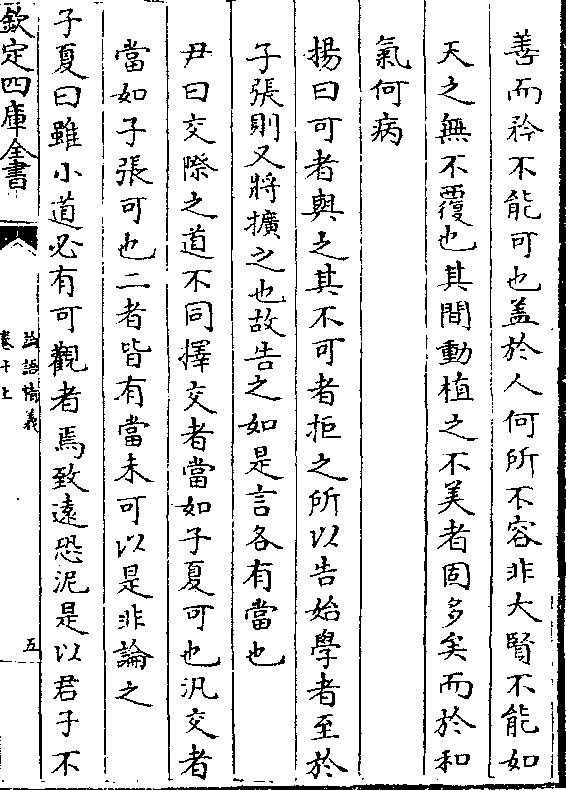 善而矜不能可也盖於人何所不容非大賢不能如
天之無不覆也其間動植之不美者固多矣而於和
氣何病
揚曰可者與之其不可者拒之所以告始學者至於
子張則又將擴之也故告之如是言各有當也
尹曰交際之道不同擇交者當如子夏可也汎交者
當如子張可也二者皆有當未可以是非論之
子夏曰雖小道必有可觀者焉致遠恐泥是以君子不
欽定四庫全書
論語精義
卷十上
五